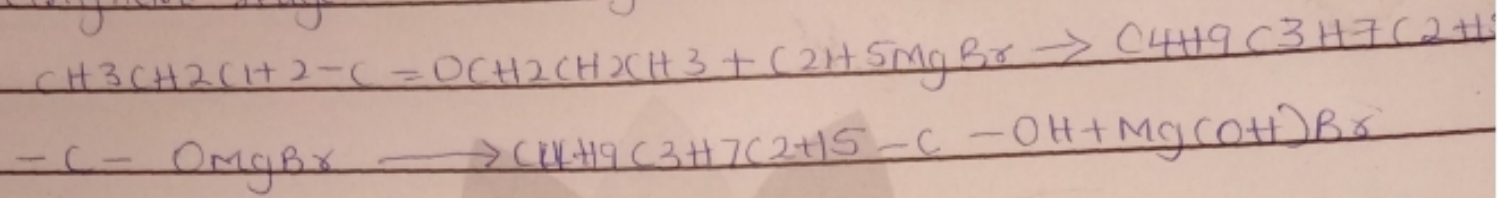 CH3CH2CH2-C=OCH2CH2CH3+C2H5MgBr→C4H9C3H7C2H5
-C-OMgBr→C4H9C3H7C2H5-C-OH+Mg(OH)Br